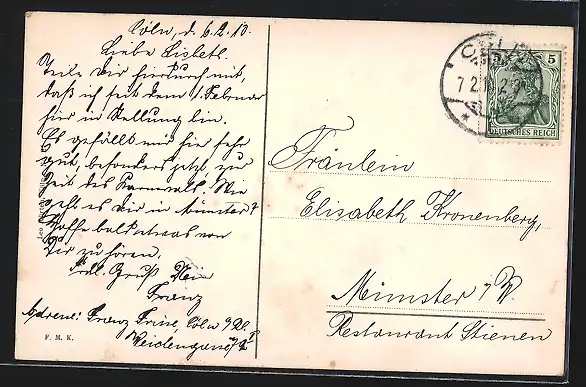 Cöln, d. 6.2.10.
Liebe Lisbeth.
Teile dir hierdurch mit,
daß ich seit dem 1. Februar
hier in Stellung bin.
Es gefällt mir hier sehr
gut, besonders jetzt, zur
Zeit des Karnevals. Wie
geht es dir in Münster?
Hoffe bald etwas von
Dir zu hören.
Gruß Dein
Franz
Adresse: Franz Cöln a/Rh.
Weidengasse
F. M. K.
Leo
CÖLN
7 2
5 5
DEUTSCHES REICH
Fräulein
Elisabeth Kronenberg,
Münster i/W.
Restaurant Stienen